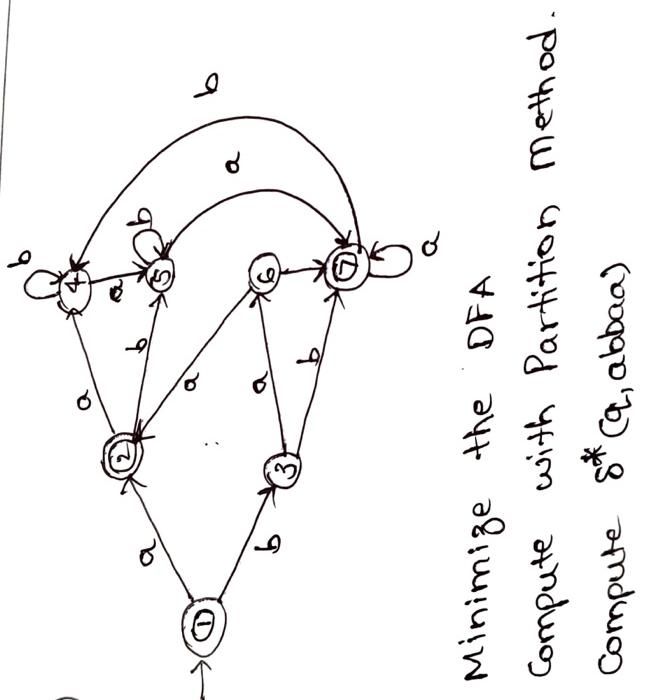 b
4
a
a
2
b
b
a
5
a
1
b
a
a
6
b
3
b
7
a
Minimize the DFA
Compute with Partition Method.
Compute δ* (q, abbaa)